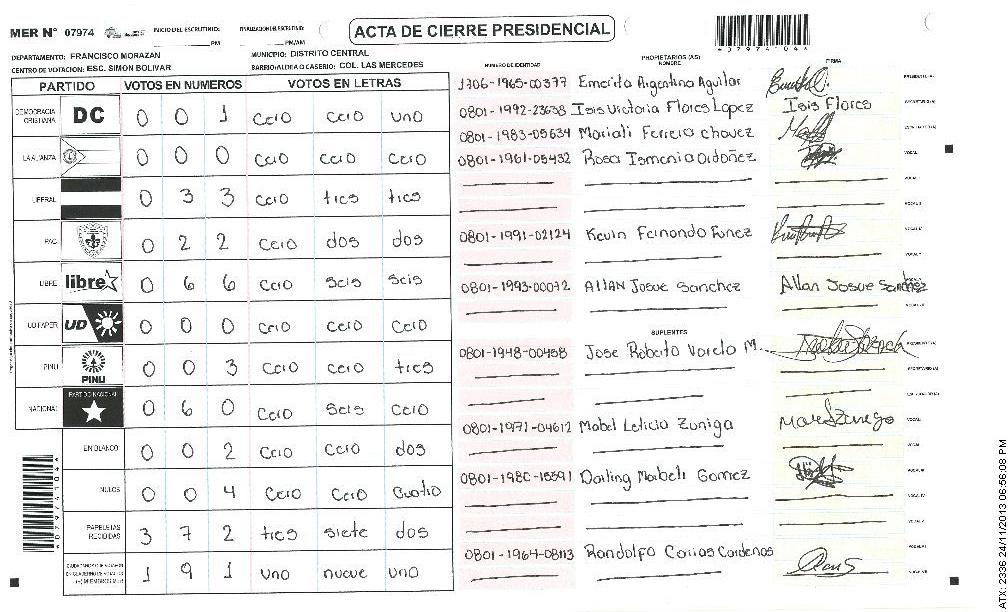 MER Nº 07974
INICIO DEL ESCRUTINIO:
PM
FINALIZACION DEL ESCRUTINIO:
PM/AM
ACTA DE CIERRE PRESIDENCIAL
*07974104*
DEPARTAMENTO: FRANCISCO MORAZAN
MUNICIPIO: DISTRITO CENTRAL
CENTRO DE VOTACION: ESC. SIMON BOLIVAR
BARRIO/ALDEA O CASERIO: COL. LAS MERCEDES
PARTIDO VOTOS EN NUMEROS VOTOS EN LETRAS
DEMOCRACIA CRISTIANA DC 0 0 1 cero cero uno
LA ALIANZA 0 0 0 cero cero cero
LIBERAL 0 3 3 cero tres tres
PAC 0 2 2 cero dos dos
LIBRE libre 0 6 6 cero seis seis
UD FAPER UD 0 0 0 cero cero cero
PINU PINU 0 0 3 cero cero tres
NACIONAL PARTIDO NACIONAL 0 6 0 cero seis cero
EN BLANCO 0 0 2 cero cero dos
NULOS 0 0 4 cero cero cuatro
PAPELETAS RECIBIDAS 3 7 2 tres siete dos
1 9 1 uno nueve uno
*07974104*
NUMERO DE IDENTIDAD
PROPIETARIOS (AS)
NOMBRE
FIRMA
1706-1965-00377 Emerita Argentina Aguilar PRESIDENTE(A)
0801-1992-23638 Isis Victoria Flores Lopez Isis Flores SECRETARIO(A)
0801-1983-05634 Mariali Ferrera chavez ESCRUTADOR(A)
0801-1961-05432 Rosa Ismenia Ordoñez VOCAL I
0801-1991-02124 Kevin Fernando Funez
0801-1993-00072 Allan Josue Sanchez Allan Josue Sanchez
SUPLENTES
0801-1948-00458 Jose Roberto Varela M. PRESIDENTE(A)
SECRETARIO(A)
ESCRUTADOR(A)
0801-1971-04612 Mabel Leticia Zuniga
0801-1980-15591 Darling Mabeli Gomez
0801-1964-08113 Randolfo Carias Cardenas
ATX: 2336 24/11/2013 06:56:08 PM